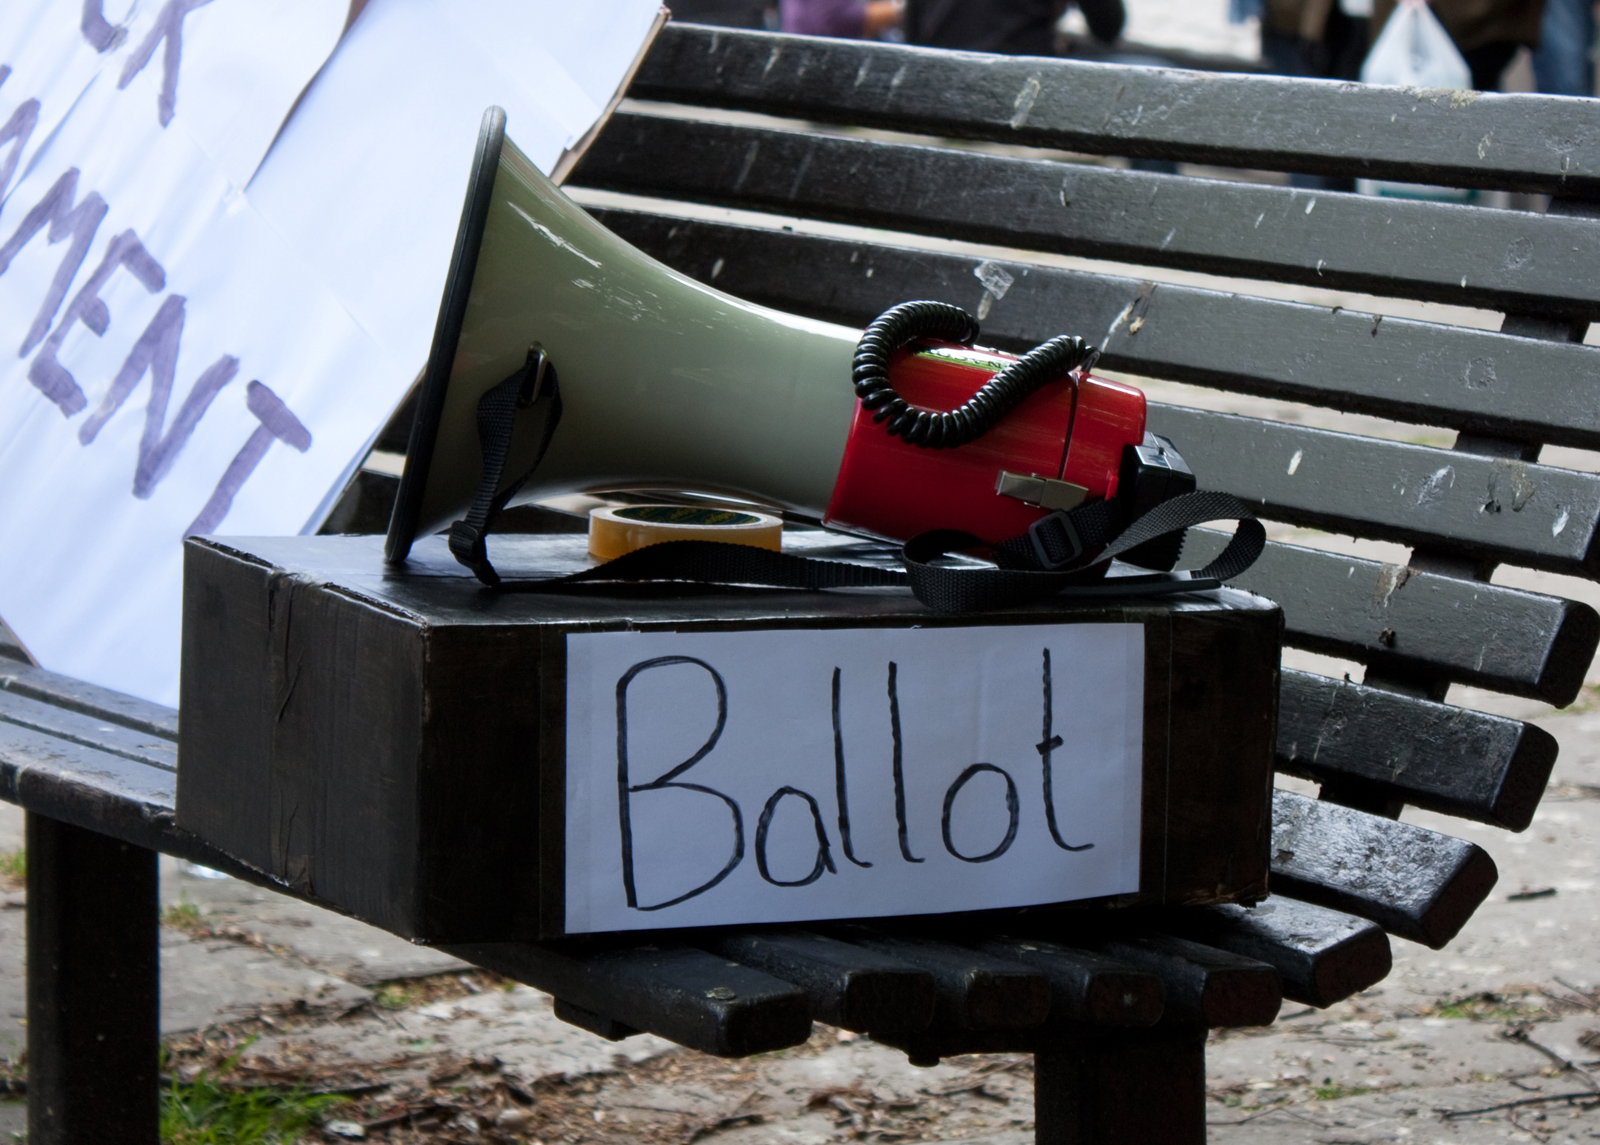 CK
AMENT
Ballot